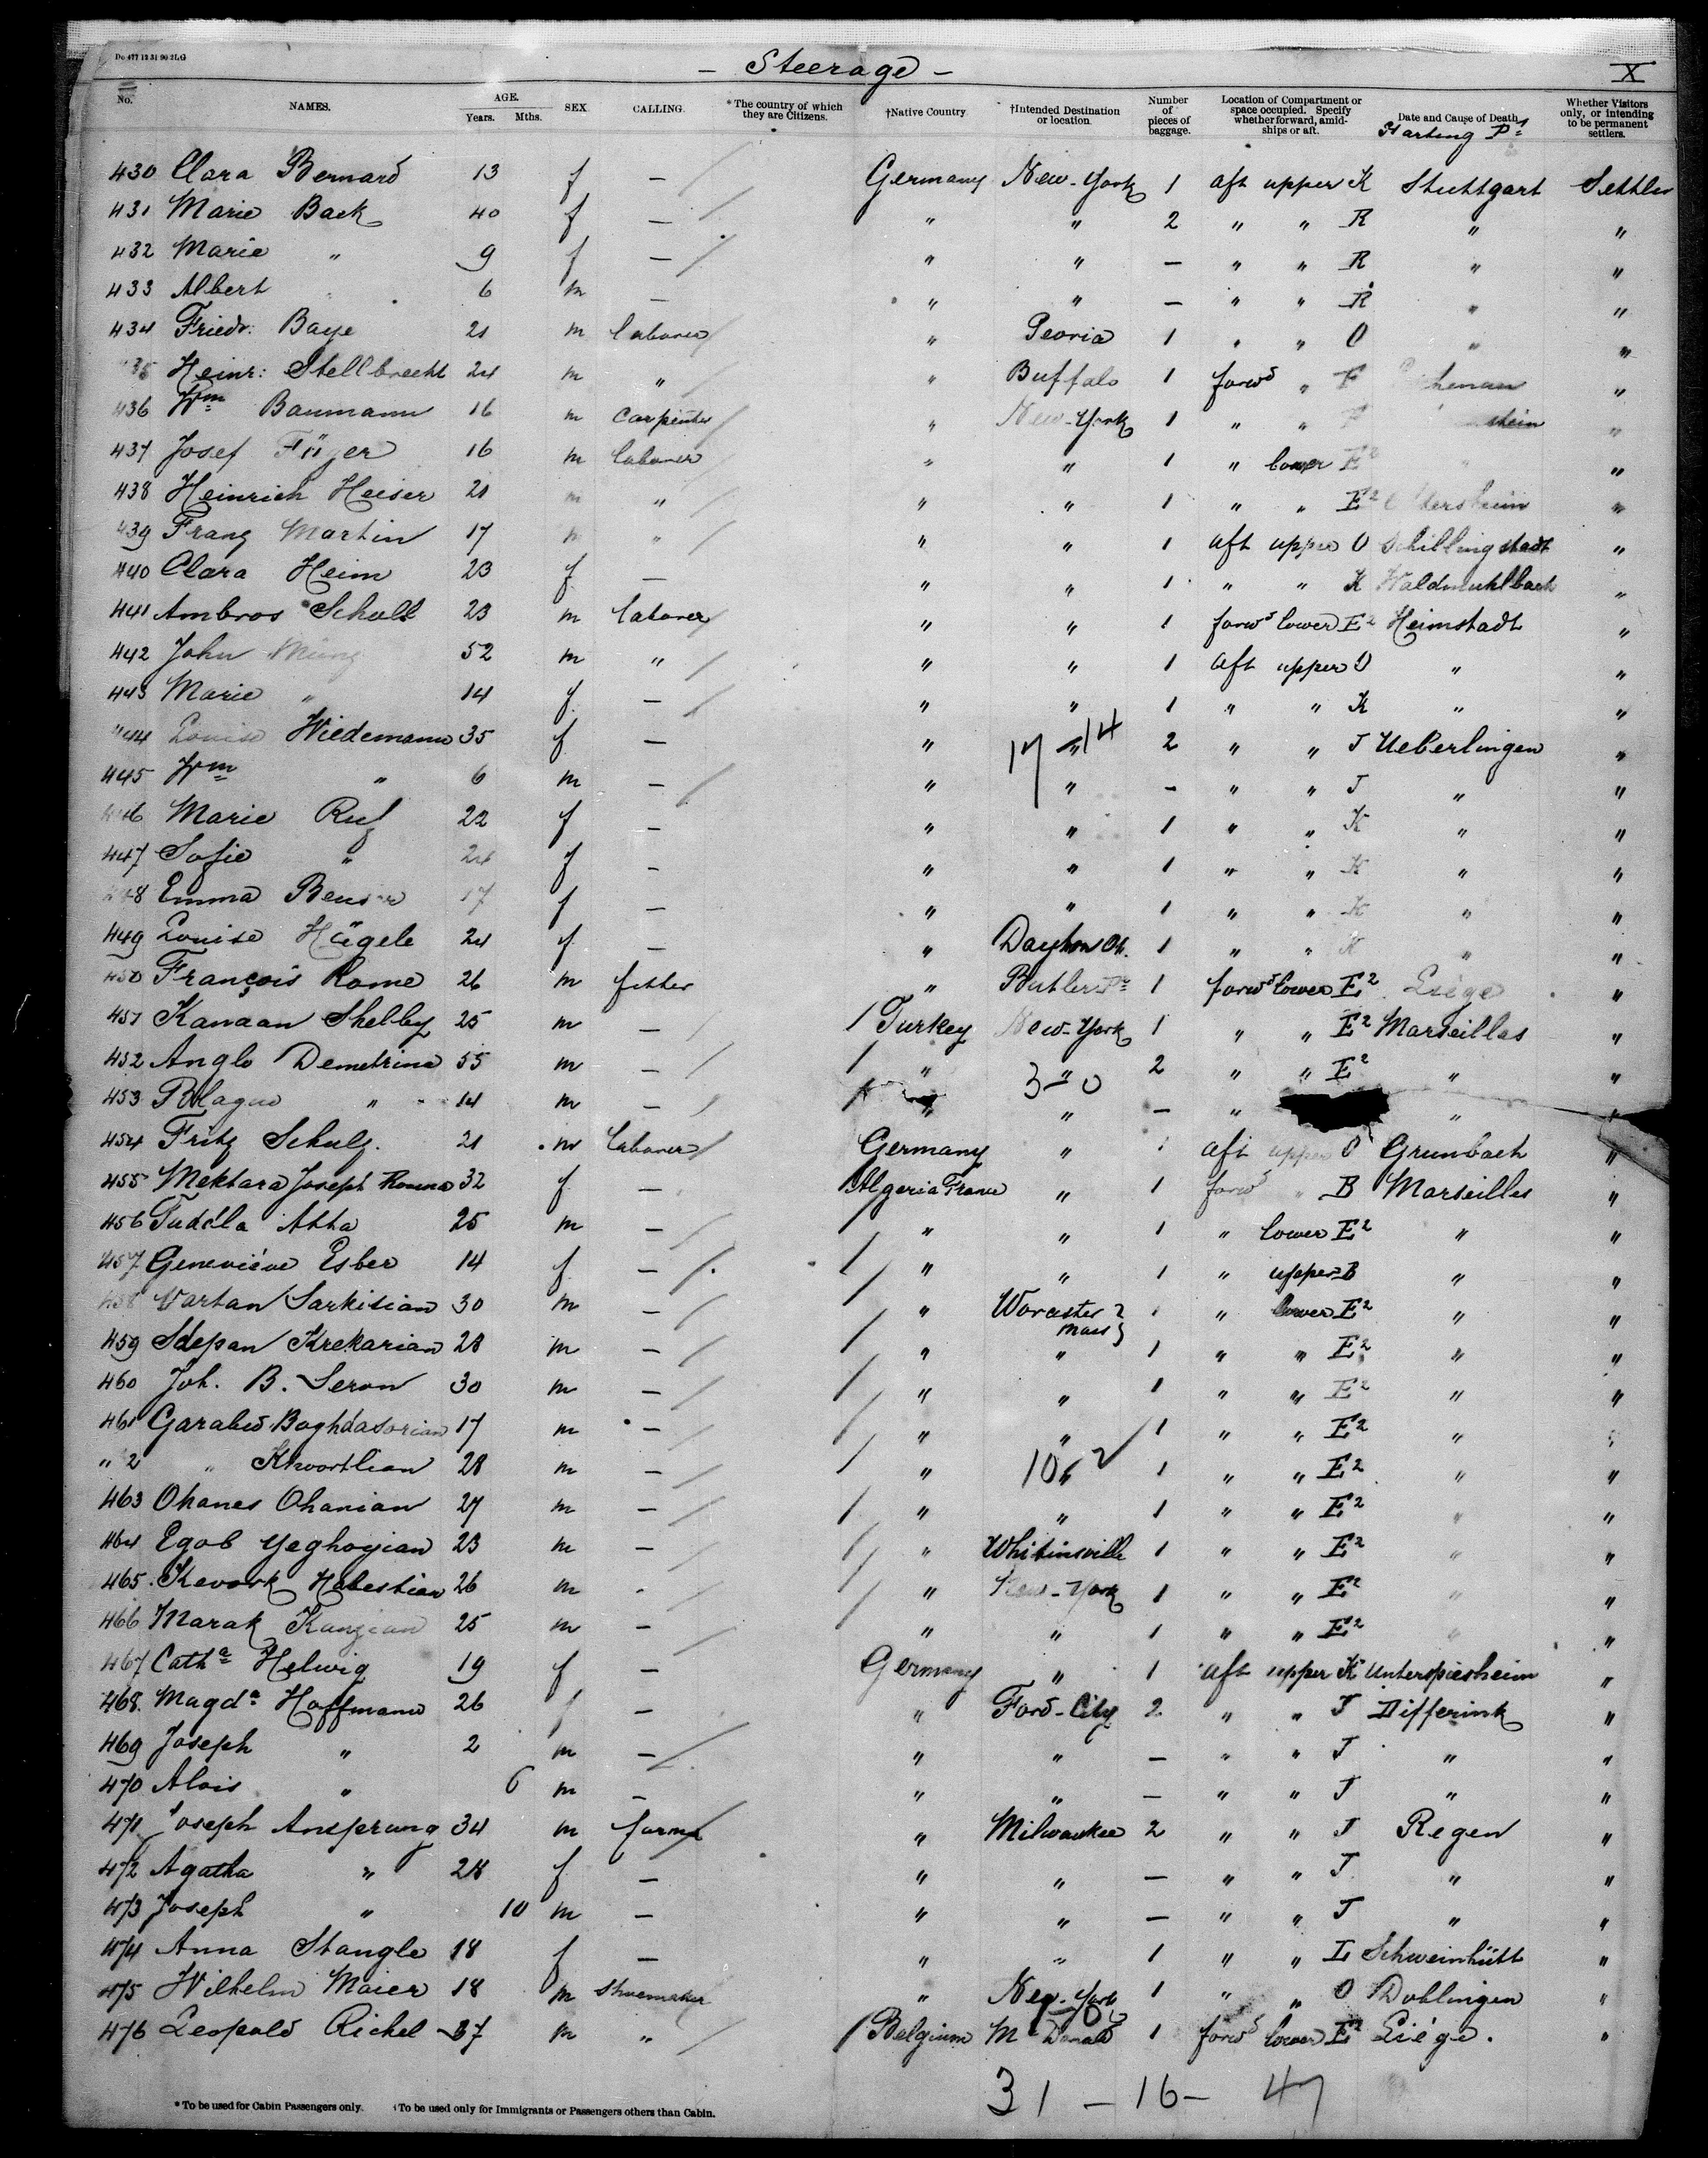 Do 477 12 31 90 2LG
— Steerage —
X
No. NAMES. AGE. Years. Mths. SEX. CALLING. *The country of which they are Citizens. †Native Country †Intended Destination or location. Number of pieces of baggage. Location of Compartment or space occupied. Specify whether forward, amidships or aft. Date and Cause of Death Whether Visitors only, or intending to be permanent settlers.
Starting Pt
430 Clara Bernard 13 f — Germany New-York 1 aft upper K Stuttgart Settler
431 Marie Back 40 f — " " 2 " " R " "
432 Marie " 9 f — " " — " " R " "
433 Albert 6 m — " " — " " R " "
434 Friedr: Baye 21 m laborer " Peoria 1 " " O " "
435 Heinr: Stellbrecht 24 m " " Buffalo 1 forwd " F "
436 Wm Baumann 16 m carpenter " New-York 1 " " F "
437 Josef Füger 16 m laborer " " 1 " lower E2 " "
438 Heinrich Heiser 21 m " " " 1 " " E2 "
439 Franz Martin 17 m " " " 1 aft upper O Schillingstadt "
440 Clara Heim 23 f — " " 1 " " K Waldmuhlbach "
441 Ambros Scholl 23 m laborer " " 1 forwd lower E2 Heimstadt "
442 John 52 m " " " 1 aft upper O " "
443 Marie " 14 f — " " 1 " " K " "
444 Louise Wiedemann 35 f — " " 2 " " J Ueberlingen "
17 — 14
445 Wm " 6 m — " " — " " J " "
446 Marie Ruf 22 f — " " 1 " " K " "
447 Sofie " 24 f — " " 1 " " K " "
448 Emma 17 f — " " 1 " " K " "
449 Louise Hügele 24 f — " Dayton Oh. 1 " " K " "
450 François Rome 26 m fitter " Butler Pa 1 forwd lower E2 Liége "
451 Kanaan Shelby 25 m — Turkey New-York 1 " " E2 Marseilles "
452 Anglo Demetrina 55 m — " " 2 " " E2 " "
3 — 0
453 " 14 m — " " — " " "
454 Fritz Schulz. 21 m laborer Germany " aft upper O Grunbach "
455 Mektara Joseph 32 f — Algeria France " 1 forwd " B Marseilles "
456 Tudéla Atta 25 m — " " 1 " lower E2 " "
457 Geneviéve Esber 14 f — " " 1 " upper B " "
458 Vartan Sarkisian 30 m — " Worcester Mass " lower E2 " "
459 Stepan Krekarian 28 m — " " 1 " " E2 " "
460 Joh. B. Seron 30 m — " " 1 " " E2 " "
461 Garabed Baghdasorian 17 m — " " 1 " " E2 " "
" 2 " Knoortlian 28 m — " " 1 " " E2 " "
10 2
463 Ohanes Ohanian 27 m — " " 1 " " E2 " "
464 Egob Yeghoyian 23 m — " Whitinsville 1 " " E2 " "
465 Kevork Habestian 26 m - " New-York 1 " " E2 " "
466 Marak 25 m — " " 1 " " E2 " "
467 Catha Helwig 19 f — Germany " 1 aft upper K Unterspiesheim "
468. Magda Hoffmann 26 f — " Ford-City 2 " " J Differink "
469 Joseph " 2 m — " " — " " J " "
470 Alois " 6 m — " " — " " J " "
471 Joseph Ansprung 34 m farmer " Milwaukee 2 " " J Regen "
472 Agatha " 28 f — " " — " " J " "
473 Joseph " 10 m — " " — " " J " "
474 Anna Stangle 18 f — " " 1 " " L Schweinhütt "
475 Wilhelm Maier 18 m shoemaker " New-York 1 " " O Doblingen "
476 Leopold Richel 37 m " Belgium Mc Donald 1 forwd lower E2 Liége. "
31 — 16 — 47
*To be used for Cabin Passengers only. †To be used only for Immigrants or Passengers others than Cabin.